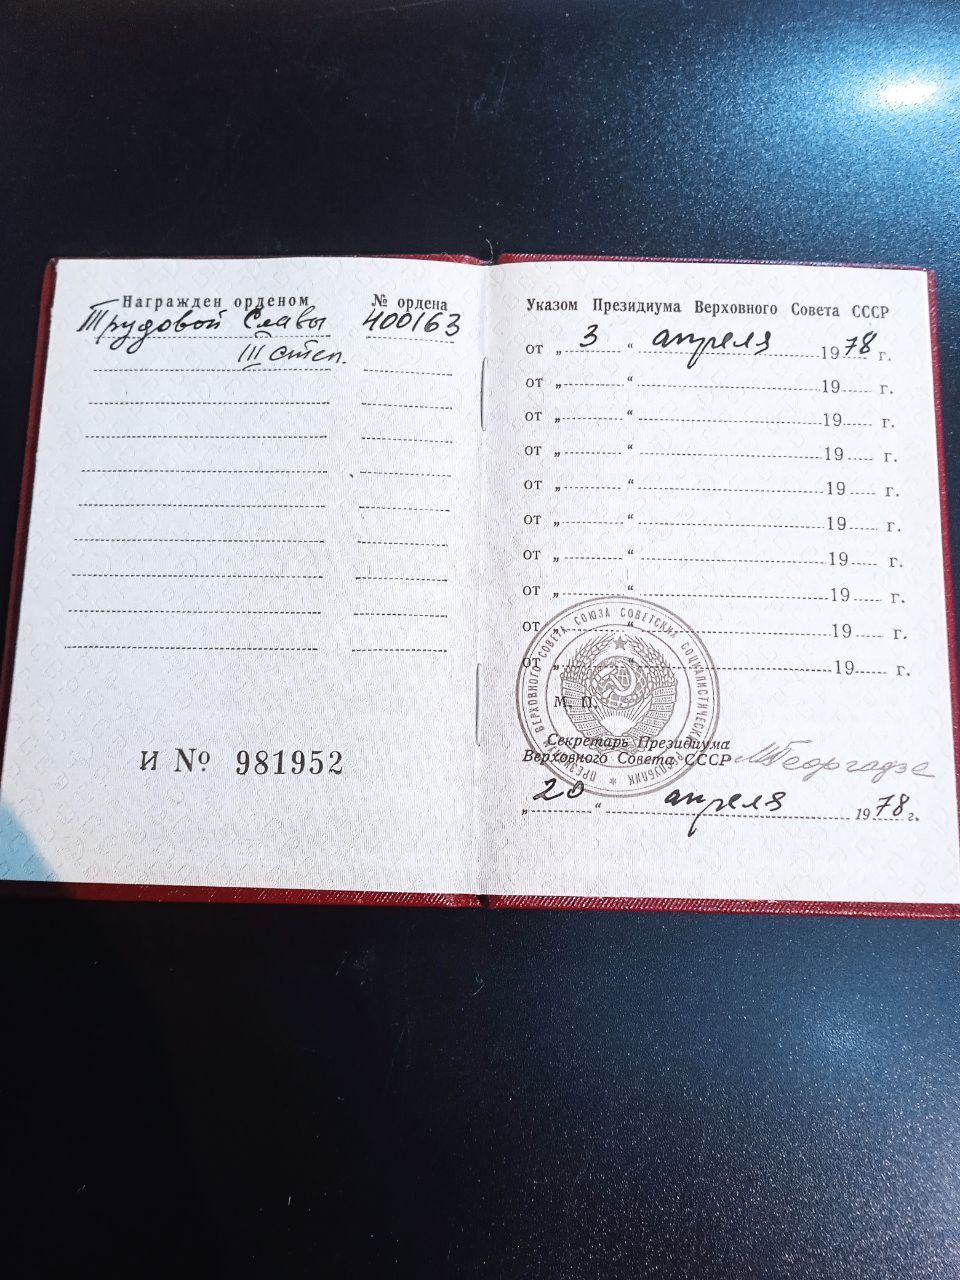 Награжден орденом № ордена
Трудовой Славы 400163
III степ.
И № 981952
Указом Президиума Верховного Совета СССР
от „ 3 “ апреля 1978 г.
от „ “ 19 г.
от „ “ 19 г.
от „ “ 19 г.
от „ “ 19 г.
от „ “ 19 г.
от „ “ 19 г.
от „ “ 19 г.
от „ “ 19 г.
от „ “ 19 г.
ПРЕЗИДИУМ ВЕРХОВНОГО СОВЕТА СОЮЗА СОВЕТСКИХ СОЦИАЛИСТИЧЕСКИХ РЕСПУБЛИК
М. П.
Секретарь Президиума
Верховного Совета СССР МГеоргадзе
„ 20 “ апреля 1978 г.